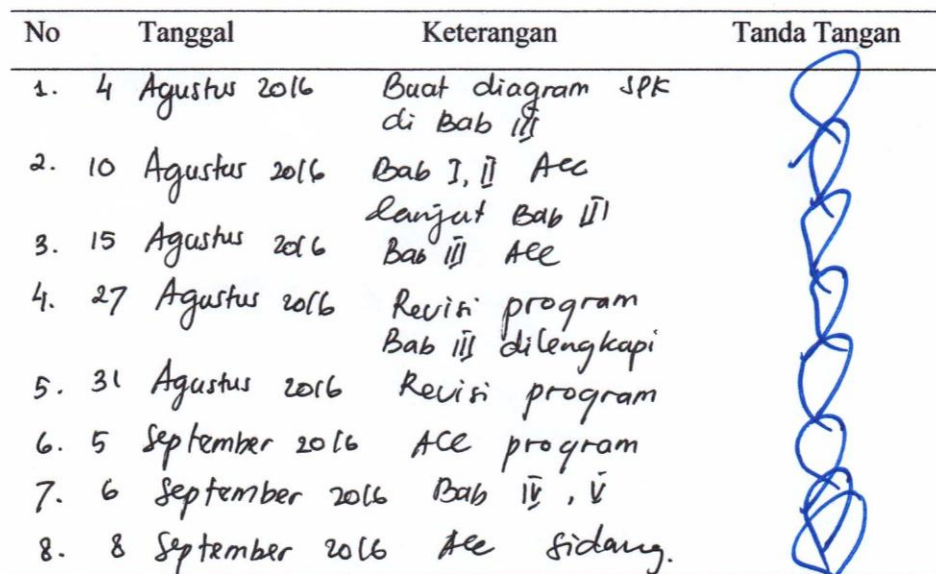 No Tanggal Keterangan Tanda Tangan
1. 4 Agustus 2016 Buat diagram SPK
di Bab III
2. 10 Agustus 2016 Bab I, II Acc
lanjut Bab III
3. 15 Agustus 2016 Bab III Acc
4. 27 Agustus 2016 Revisi program
Bab III dilengkapi
5. 31 Agustus 2016 Revisi program
6. 5 September 2016 ACC program
7. 6 September 2016 Bab IV, V
8. 8 September 2016 Acc Sidang.